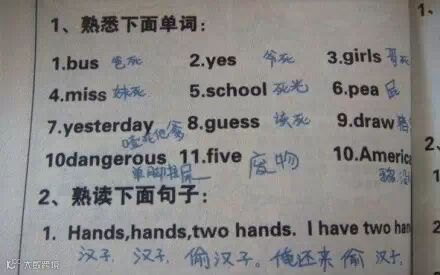 1、熟悉下面单词：
1.bus 爸死 2.yes 爷死 3.girls 哥死
4.miss 妹死 5.school 死光 6.pea 屁
7.yesterday 8.guess 读死 9.draw
10dangerous 单脚拉屎 11.five 废物 10.America
2、熟读下面句子：
1. Hands,hands,two hands. I have two han
汉子，汉子，偷汉子。俺还来偷汉子，
大数跨境